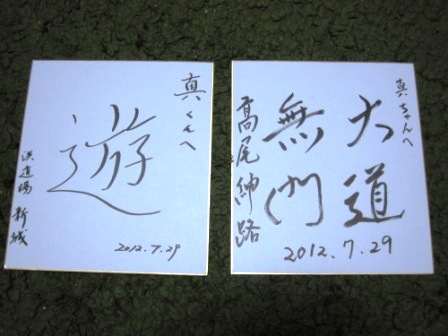 真くんへ
遊
洪道場 新城
2012.7.29
真ちゃんへ
大道
無門
高尾紳路
2012.7.29